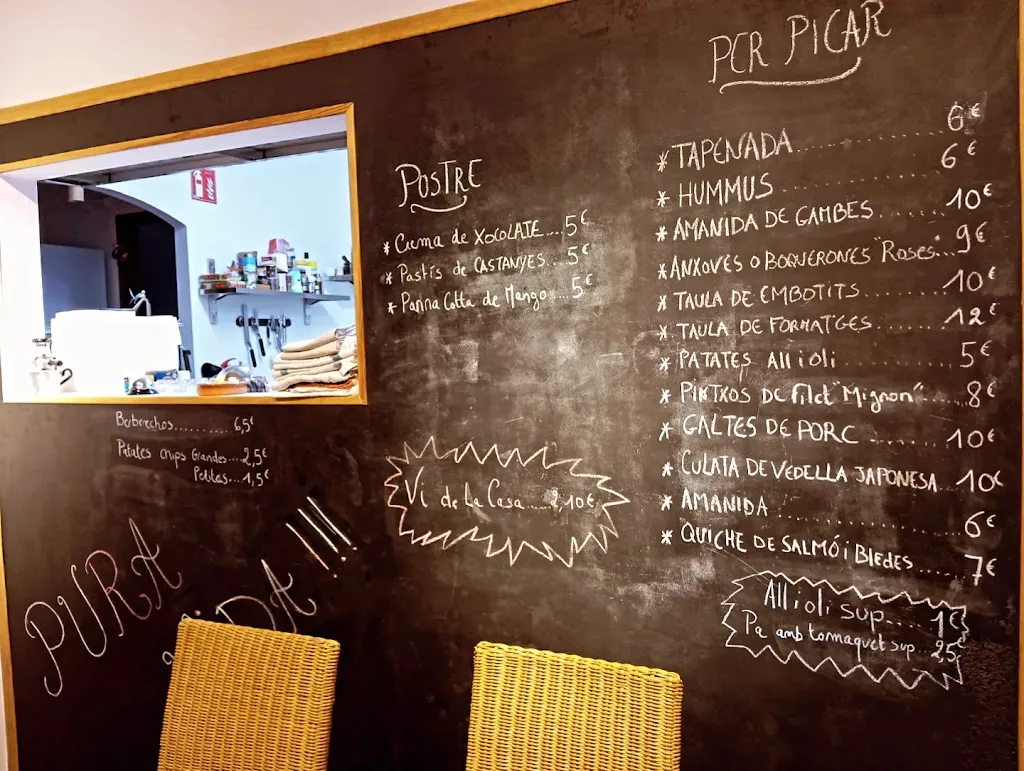 PER PICAR
* TAPENADA........6€
* HUMMUS 6€
* AMANIDA DE GAMBES.......10€
* ANXOVES O BOQUERONES "ROSES"...9€
* TAULA DE EMBOTITS........10€
* TAULA DE FORMATGES........12€
* PATATES ALLiOli 5€
* PINTXOS DE Filet "Mignon".....8€
* GALTES DE PORC.......10€
* CULATA DE VEDELLA JAPONESA..10€
* AMANIDA..........6€
* QUICHE DE SALMÓ i BLEDES.....7€
Allioli sup....1€
Pa amb tomaquet sup..2,5€
POSTRE
* Crema de XOCOLATE....5€
* Pastís de CASTANYES...5€
* Panna Cotta de Mango...5€
Vi de La Casa.....2,10€
Berberechos..........6,5€
Patates chips Grandes...2,5€
Petites...1,5€
PURA
VIDA !!!!